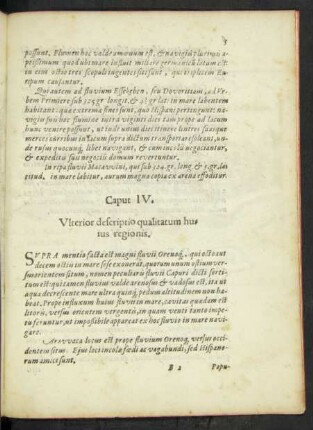 possunt. Flumen hoc valde amœnum est, & navigiis plurimis a-
ptissimum quod ubi mare influit milliare germanicū latum est:
in eius ostio tres scopuli ingentes siti sunt, qui triplicem Eu-
ripum causantur.
Qui autem ad fluvium Essekeben, seu Devoritiam, ad
hem Primiere sub 325 gr. longit. & 6 ⅓ gr. lat. in mare labentem
habitant quasi extrema sinus sunt, quo Hispani pertingunt: na-
vigio suis hoc flumine intra viginti dies tam prope ad lacum
hunc venire possunt, ut inde unius diei itinere lintres suasque
merces
ne rursus quocunq; libet navigant, & cum incolis negociantur,
& expeditis suis negociis domum revertuntur.
In ripa fluvii Macawini, qui sub 324. gr. long. & 5. gr. lati
titud. in mare labitur, aurum magna copia ex arena effoditur.
Caput IV.
Vlterior descriptio qualitatum hu-
ius regionis.
SUPRA mentio facta est magni fluvii Orenoq, qui ostiis se-
decim ostiis in mare sese exonerat, quorum unum ultimum ver-
sus orientem situm, nomen peculiarii fluvii Capuri dicti sorti-
tum est: qui tamen fluvius valde arenosus & vadosus est, ita ut
aqua decrescente mox ultra quinq; pedum altitudinem non ha-
beat. Prope influxum huius fluvii in mare, cavitas quædam est
littoris, versus orientem vergentis, in quam venti tanto impe-
tu feruntur, ut impossibile appareat ex hoc fluvio in mare navi-
gare.
Arowaca locus est prope fluvium Orenoq, versus occi-
dentem situs. Ejus loci incolæ fœdi ac vagabundi, sed Hispano-
rum amici sunt.
B 2 Papu-